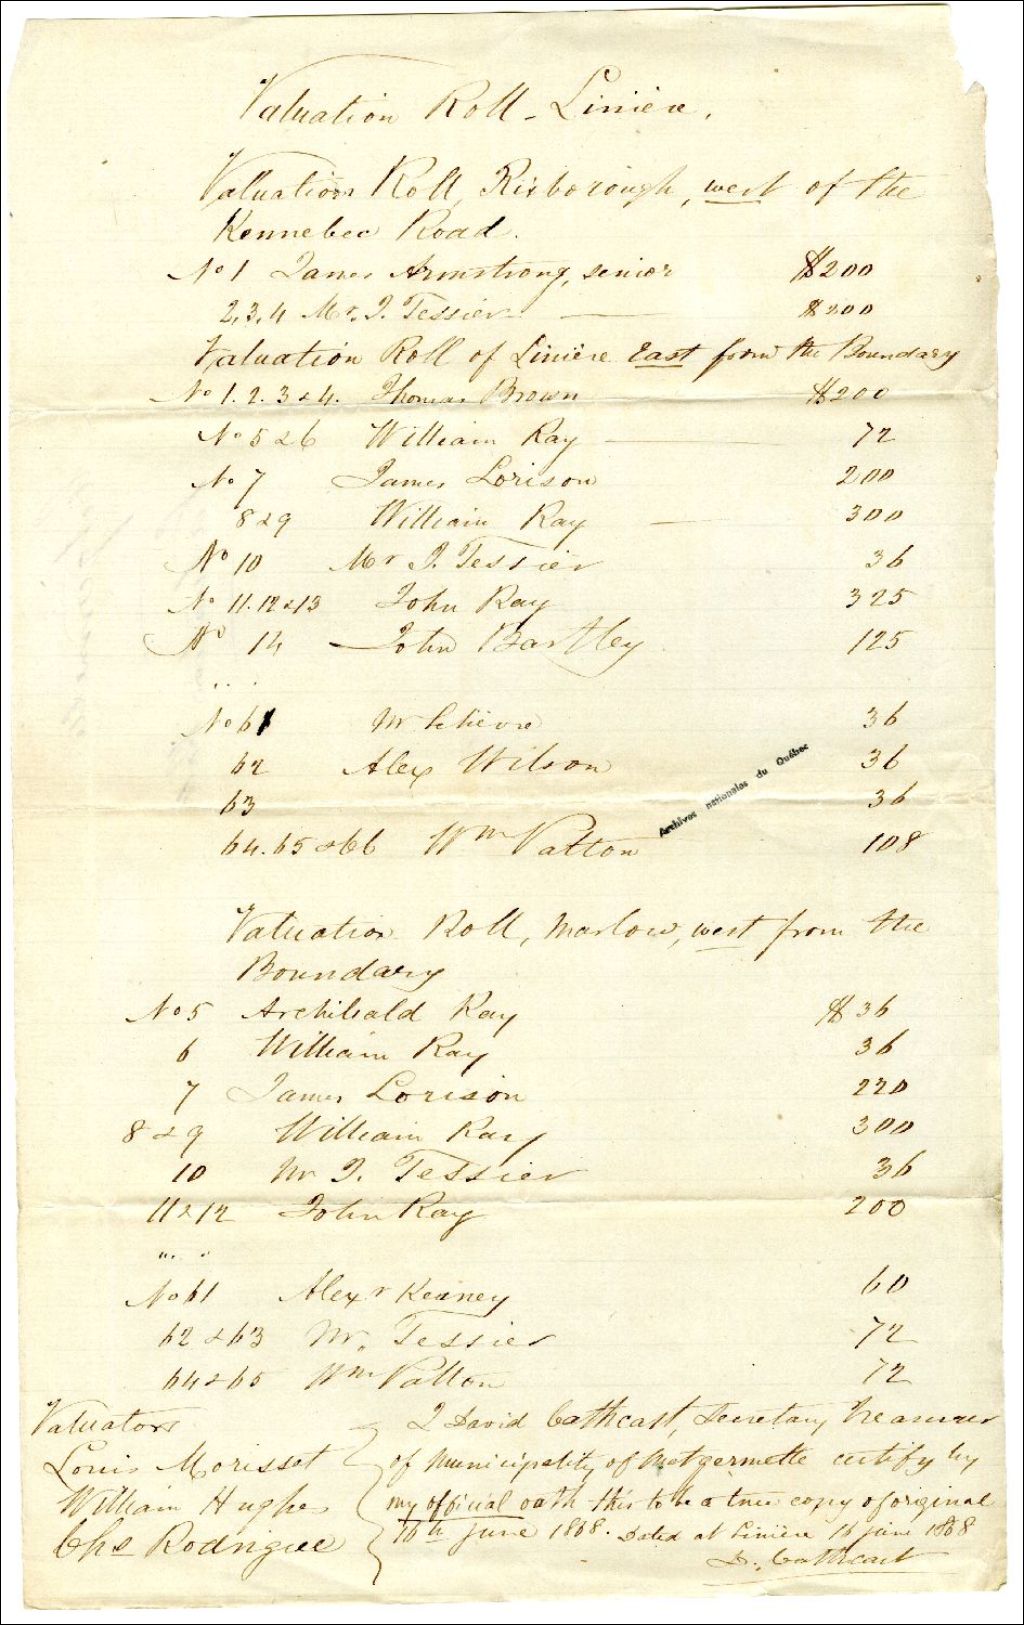 Valuation Roll - Linière.
Valuation Roll, Risborough, west of the
Kennebec Road.
No 1 James Armstrong, senior $200
2, 3, 4 Mr. J. Tessier $200
Valuation Roll of Linière East from the Boundary
No 1. 2. 3 & 4. Thomas Brown $200
No 5 & 6 William Ray 72
No 7 James Lorison 200
8 & 9 William Ray 300
No 10 Mr J. Tessier 36
No 11. 12 & 13 John Ray 325
No 14 John Bartley 125
... .
No 61 Mr 36
62 Alex Wilson 36
63 36
64. 65 & 66 Wm Patton 108
Archives nationales du Québec
Valuation Roll, Marlow, west from the
Boundary
No 5 Archibald Ray $ 36
6 William Ray 36
7 James Lorison 220
8 & 9 William Ray 300
10 Mr J. Tessier 36
11 & 12 John Ray 200
... .
No 61 Alexr Kenney 60
62 & 63 Mr. Tessier 72
64 & 65 Wm Patton 72
Valuators
Louis Morisset
William Hughes
Chs Rodrigue
I David Cathcart, Secretary Treasurer
of Municipality of Metgermette certify by
my official oath this to be a true copy of original
16th June 1868. Dated at Linière 16 June 1868
D. Cathcart